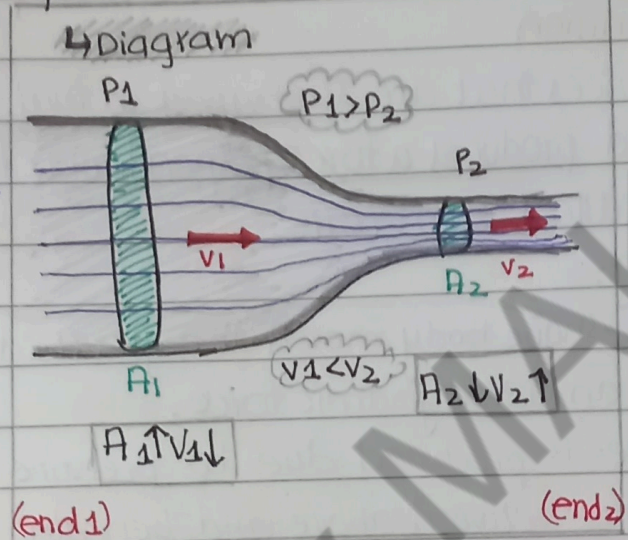 ↳Diagram
P1
P1>P2
P2
V1
V2
A2
A1
V1<V2
A2↓V2↑
A1↑V1↓
(end1)
(end2)